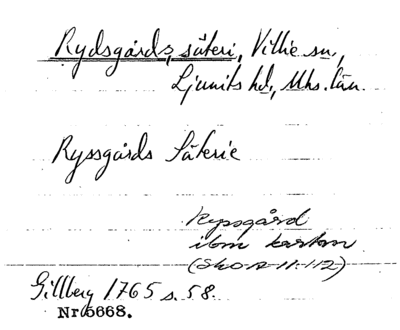 Rydsgårds säteri, Villie sn,
Ljunits hd, Mhs. län.
Ryssgårds Säterie
Ryssgård
ilom kartan
(SkoA-11-112)
Gillberg 1765 s. 58.
Nr 5668.